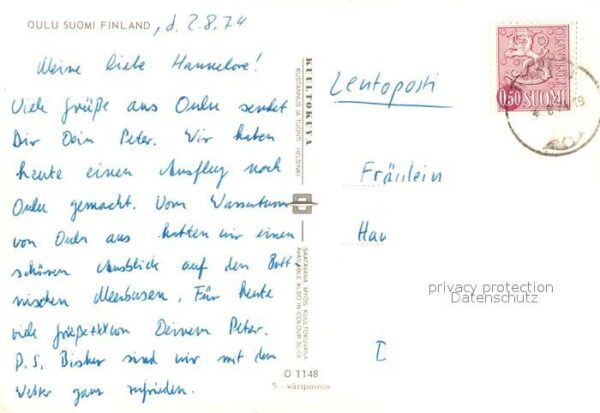 OULU SUOMI FINLAND , d. 2.8.74
Meine liebe Hannelore!
Viele Grüße aus Oulu sendet
Dir Dein Peter. Wir haben
heute einen Ausflug nach
Oulu gemacht. Vom Wasserturm
von Oulu aus hatten wir einen
schönen Ausblick auf den Bott-
nischen Meerbusen. Für heute
viele Grüße xxx von Deinem Peter.
P.S. Bisher sind wir mit dem
Wetter ganz zufrieden.
KUULTOKUVA
KUSTANNUS JA TUONTI HELSINKI
SAATAVANA MYÖS KUULTOKUVANA
AVAILABLE ALSO IN COLOUR SLIDE
O 1148
5 - väripainos
Lentoposti
0,50 SUOMI
FINLAND
Fräulein
Han
I
privacy protection
Datenschutz